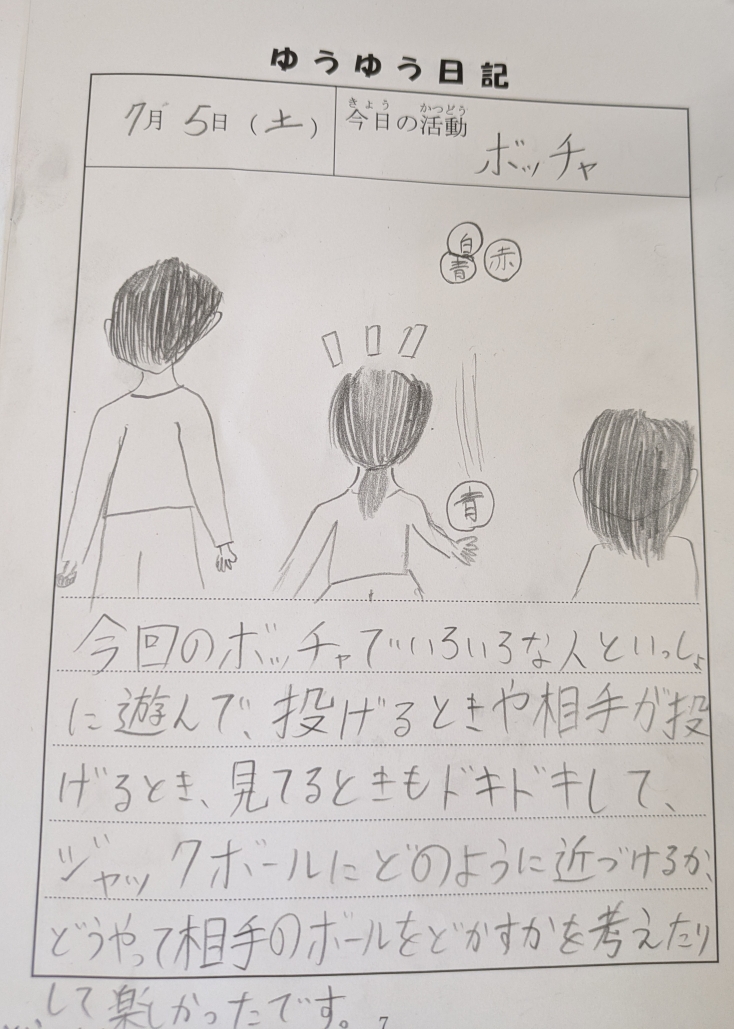 ゆうゆう日記
7月 5日 (土)
きょう かつどう
今日の活動
ボッチャ
白
青
赤
青
今回のボッチャでいろいろな人といっしょ
に遊んで、投げるときや相手が投
げるとき、見てるときもドキドキして、
ジャックボールにどのように近づけるか、
どうやって相手のボールをどかすかを考えたり
して楽しかったです。
7